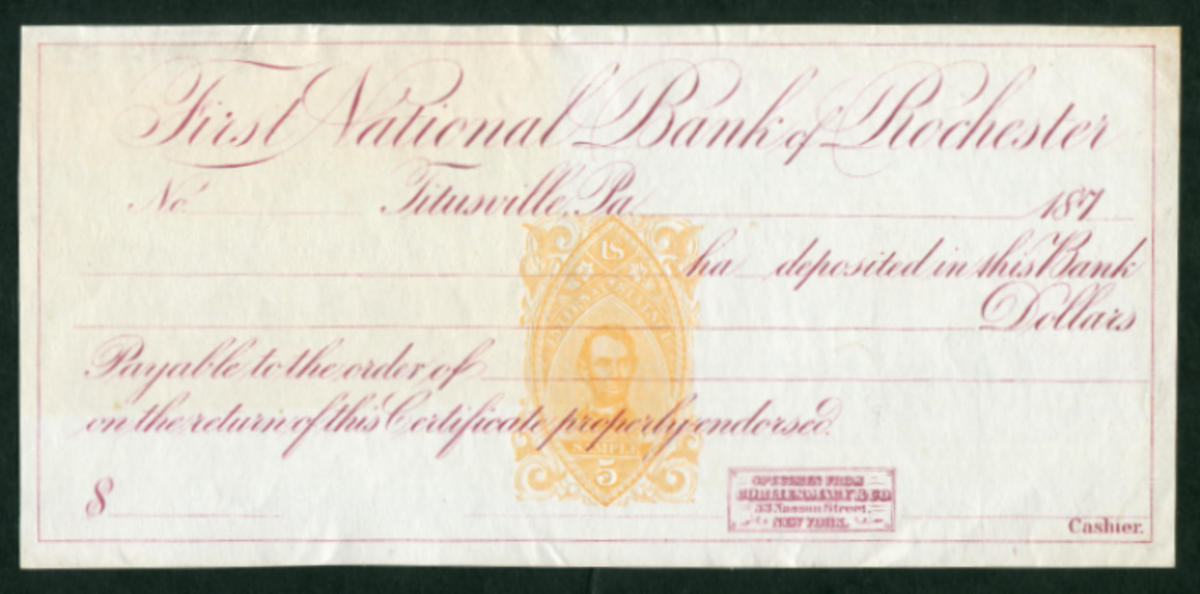 First National Bank of Rochester
No. Titusville, Pa. 187
ha deposited in this Bank
Dollars
Payable to the order of
on the return of this Certificate properly endorsed.
$
Cashier.
US
SAMPLE
5
SPECIMEN FROM
& CO
33 Nassau Street,
NEW YORK.